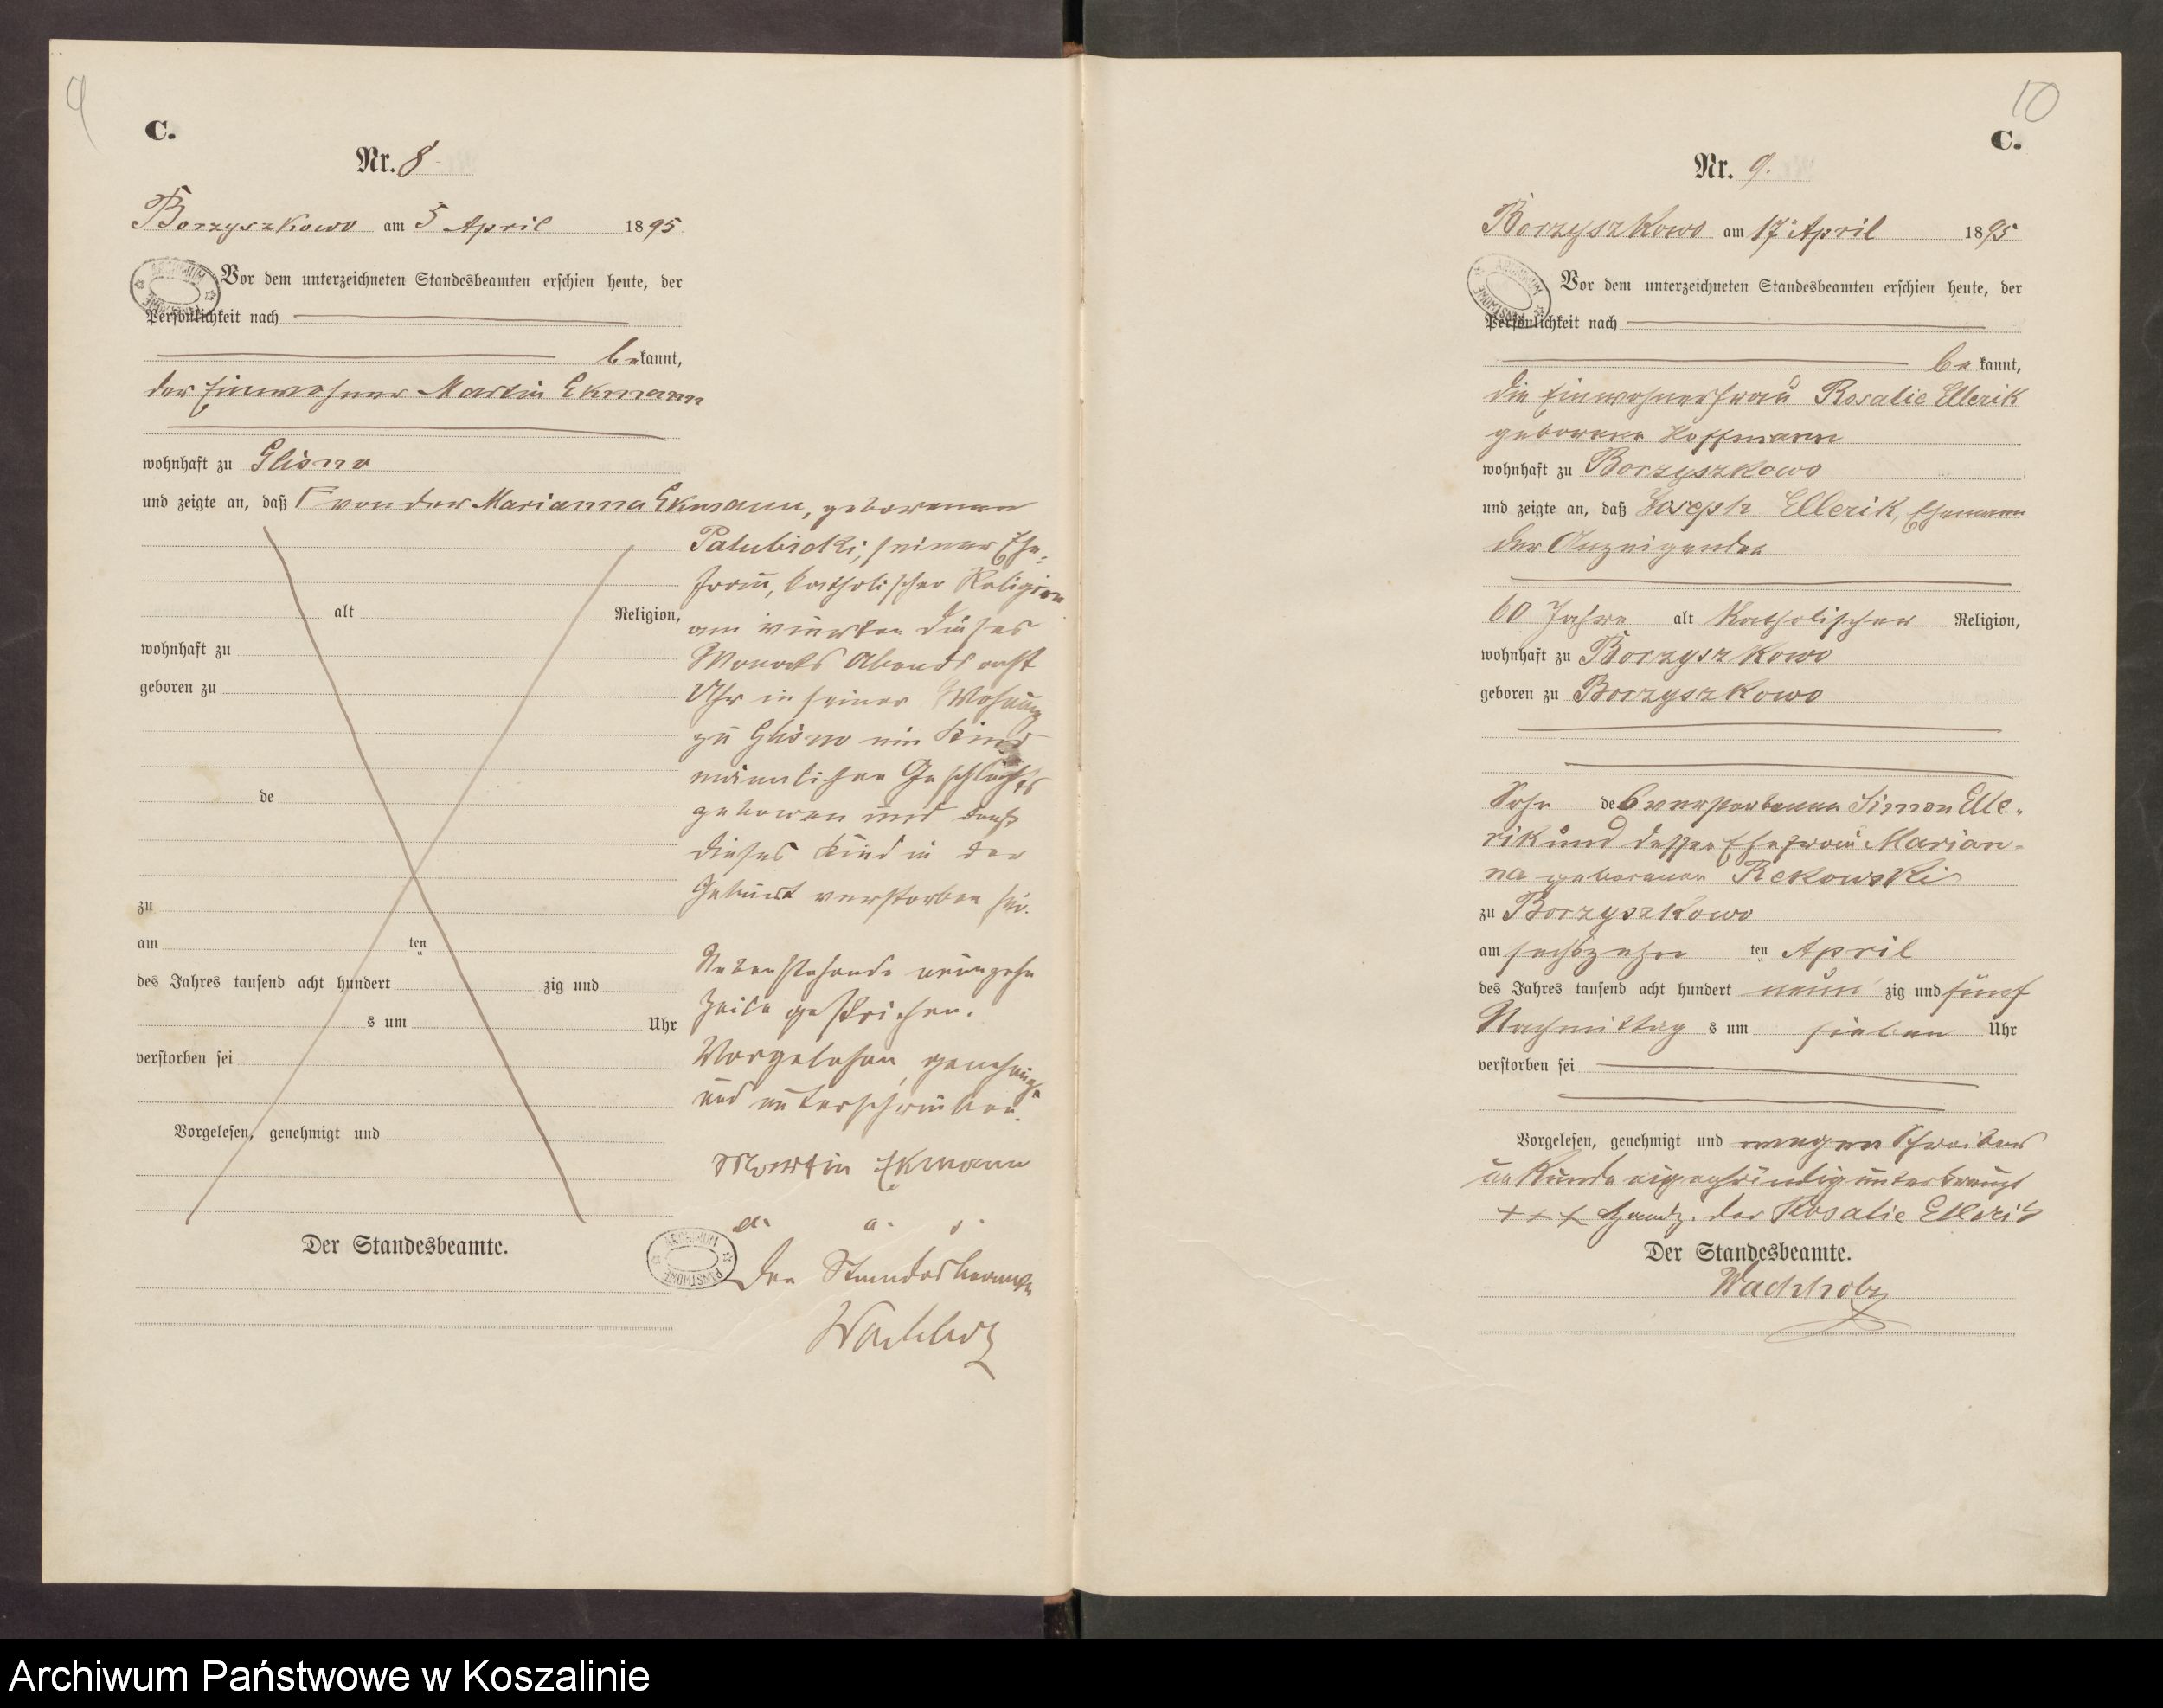 9
C.
Nr. 8
Borzyszkowo am 5 April 1895
Vor dem unterzeichneten Standesbeamten erschien heute, der
Persönlichkeit nach
bekannt,
der Einwohner Martin Ekmann
wohnhaft zu Glisno
und zeigte an, daß von der Marianna Ekmann, geborenen
Palubicki, seiner Ehe-
frau, katholischer Religion
alt Religion,
am vierten dieses
wohnhaft zu
Monats Abends acht
geboren zu
Uhr in seiner Wohnung
zu Glisno ein Kind
männlichen Geschlechts
de
geboren und daß
dieses Kind in der
Geburt verstorben sei.
zu
am ten
Nebenstehende neunzehn
des Jahres tausend acht hundert zig und
Zeile gestrichen.
s um Uhr
Vorgelesen, genehmigt
verstorben sei
und unterschrieben.
Vorgelesen, genehmigt und
Martin Ekmann
Der Standesbeamte.
Der Standesbeamte
Wachholz
10
C.
Nr. 9.
Borzyszkowo am 17 April 1895
Vor dem unterzeichneten Standesbeamten erschien heute, der
Persönlichkeit nach
be kannt,
die Einwohnerfrau Rosalie Ellerik
geborene Hoffmann
wohnhaft zu Borzyszkowo
und zeigte an, daß Joseph Ellerik, Ehemann
der Anzeigenden
60 Jahre alt katholischer Religion,
wohnhaft zu Borzyszkowo
geboren zu Borzyszkowo
Sohn des verstorbenen Simon Elle-
rik und dessen Ehefrau Marian-
na geborenen Rekowski
zu Borzyszkowo
am sechszehn ten April
des Jahres tausend acht hundert neun zig und fünf
Nachmittag s um sieben Uhr
verstorben sei
Vorgelesen, genehmigt und wegen Schreibens
unkunde eigenhändig unterkreuzt
+++ Handz. der Rosalie Ellerik
Der Standesbeamte.
Wachholz
Archiwum Państwowe w Koszalinie